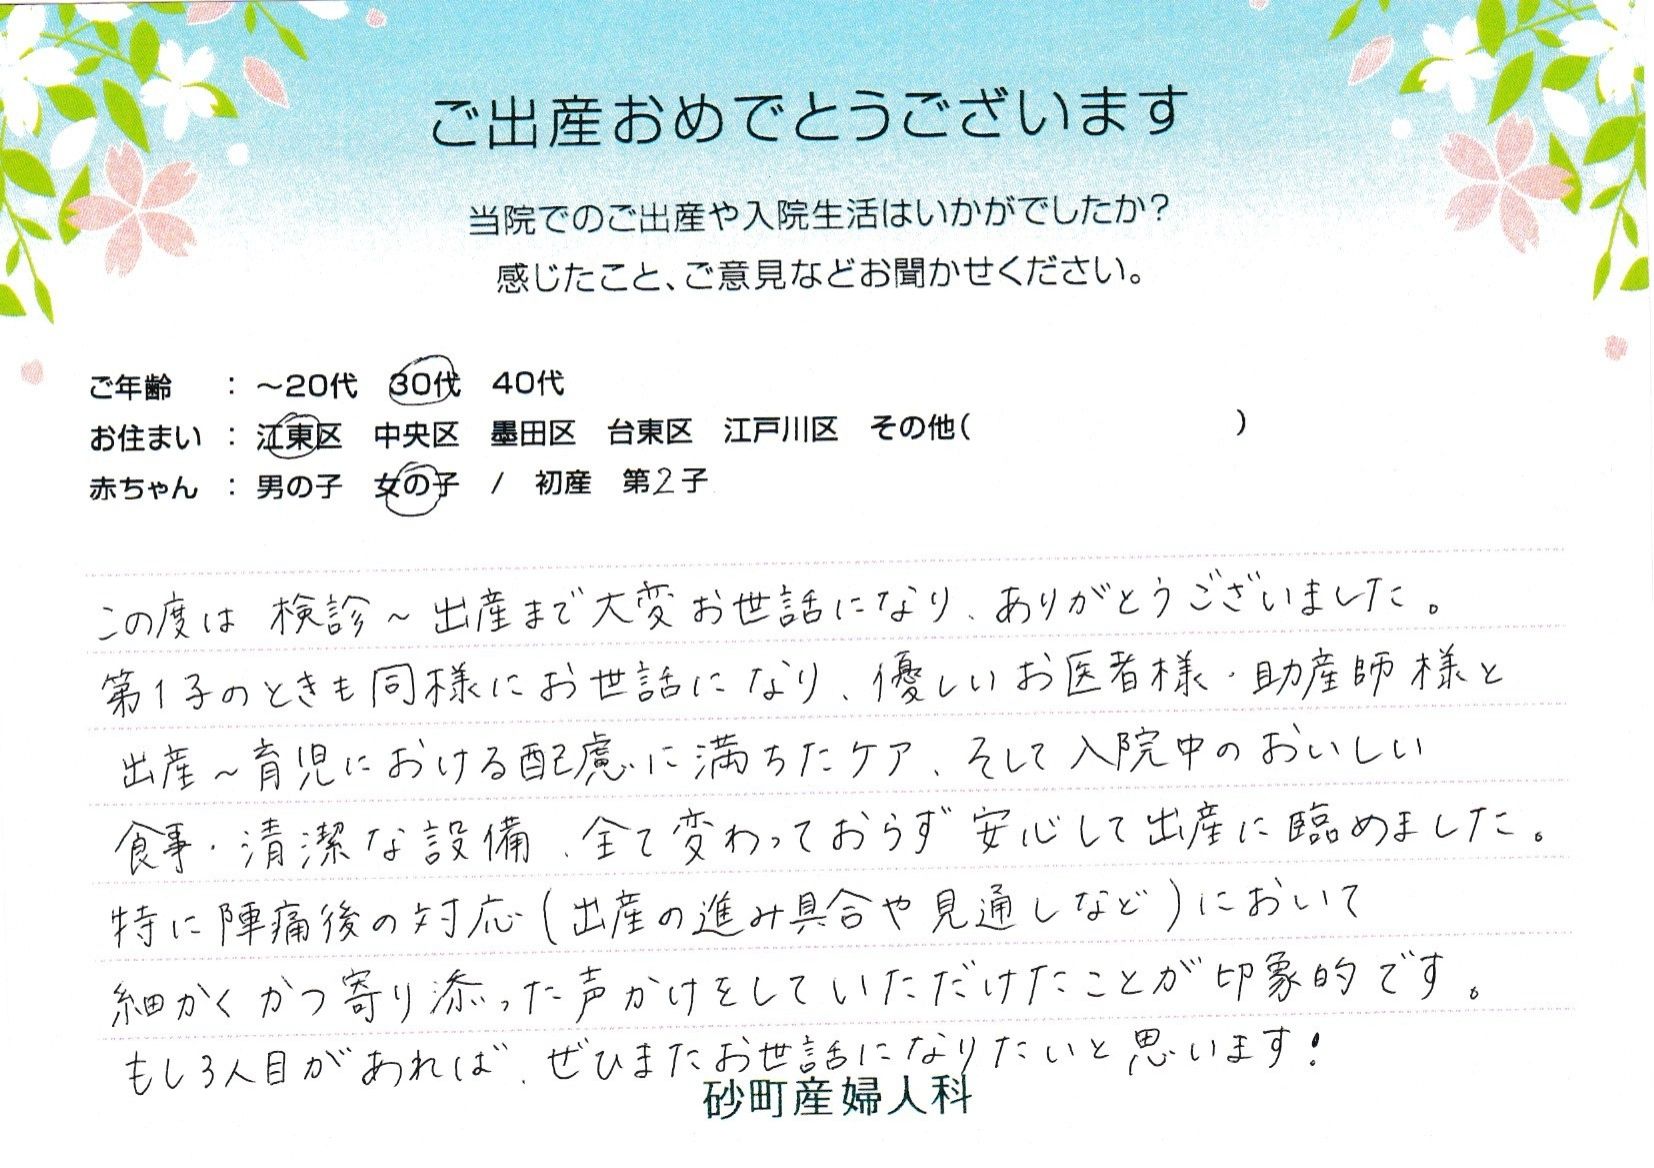 ご出産おめでとうございます
当院でのご出産や入院生活はいかがでしたか?
感じたこと、ご意見などお聞かせください。
ご年齢 : ～20代 30代 40代
お住まい : 江東区 中央区 墨田区 台東区 江戸川区 その他( )
赤ちゃん : 男の子 女の子 / 初産 第2子
この度は 検診～出産まで大変お世話になり、ありがとうございました。
第1子のときも同様にお世話になり、優しいお医者様・助産師様と
出産～育児における配慮に満ちたケア、そして入院中のおいしい
食事・清潔な設備、全て変わっておらず安心して出産に臨めました。
特に陣痛後の対応(出産の進み具合や見通しなど)において
細かくかつ寄り添った声かけをしていただけたことが印象的です。
もし3人目があれば、ぜひまたお世話になりたいと思います!
砂町産婦人科